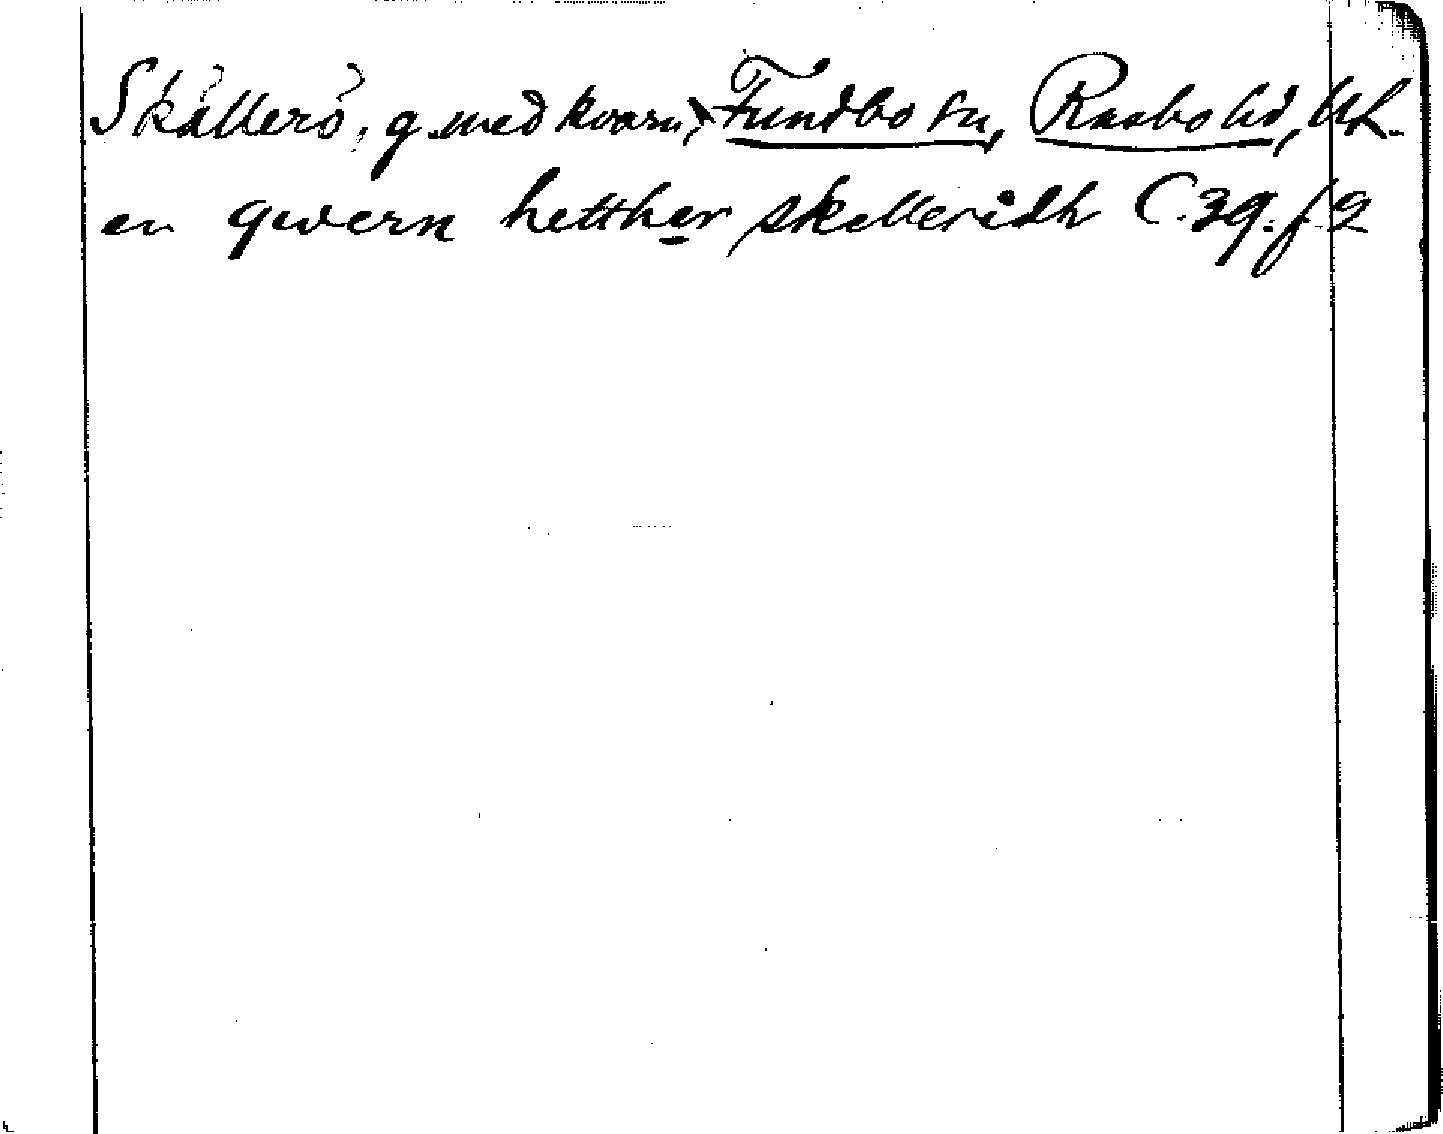 Skällerö, g. med kvarn, Fundbo sn, Rasbo hd, Upl.
en qwern hetther skelleridh C. 39. f. 2